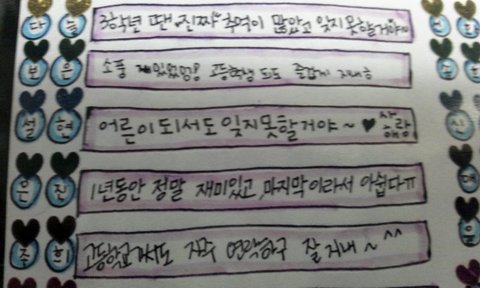 3학년 땐 "진짜" 추억이 많았고 잊지못할거야~
보은 소풍 재밌었엉! 고등학생 되도 즐겁게 지내ㅎ
설현 어른이 되서도 잊지못할거야~ ♥ 사랑
은진 1년동안 정말 재미있고 마지막이라서 아쉽다ㅠ
주희 고등학교 가서도 자주 연락하구 잘 지내~ ^^